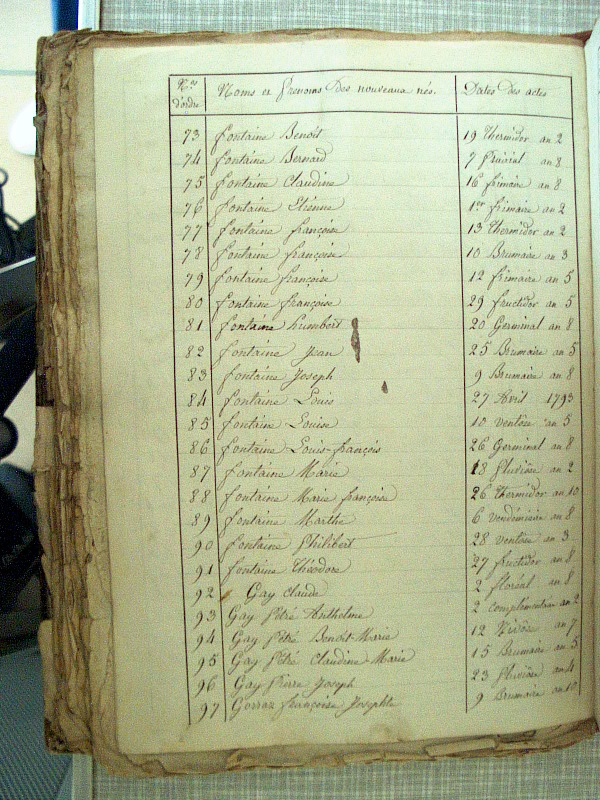 Nos d'ordre Noms et Prenoms Des nouveaux nés. Dates des actes
73 fontaine Benoit 19 thermidor an 2
74 fontaine Bernard 7 Prairial an 8
75 fontaine Claudine 16 frimaire an 8
76 fontaine Etienne 1er frimaire an 2
77 fontaine françoise 13 thermidor an 2
78 fontaine françoise 10 Brumaire an 3
79 fontaine françoise 12 frimaire an 5
80 fontaine françoise 29 fructidor an 5
81 fontaine humbert 20 Germinal an 8
82 fontaine Jean 25 Brumaire an 5
83 fontaine Joseph 9 Brumaire an 8
84 fontaine Louis 27 Avril 1793
85 fontaine Louise 10 ventose an 5
86 fontaine Louis-françois 26 Germinal an 8
87 fontaine Marie 18 Pluviose an 2
88 fontaine Marie françoise 26 thermidor an 10
89 fontaine Marthe 6 vendémiaire an 8
90 fontaine Philibert 28 ventose an 3
91 fontaine Théodore 27 fructidor an 8
92 Gay Claude 2 floréal an 8
93 Gay Pétré Anthelme 2 complémentaire an 2
94 Gay Pétré Benoit-Marie 12 Nivose an 7
95 Gay Pétré Claudine-Marie 15 Brumaire an 5
96 Gay Pierre Joseph 23 Pluviose an 4
97 Gorraz françoise Josephte 9 Brumaire an 10